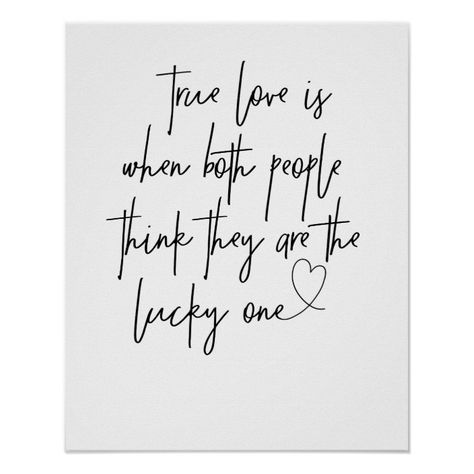 true love is
when both people
think they are the
lucky one